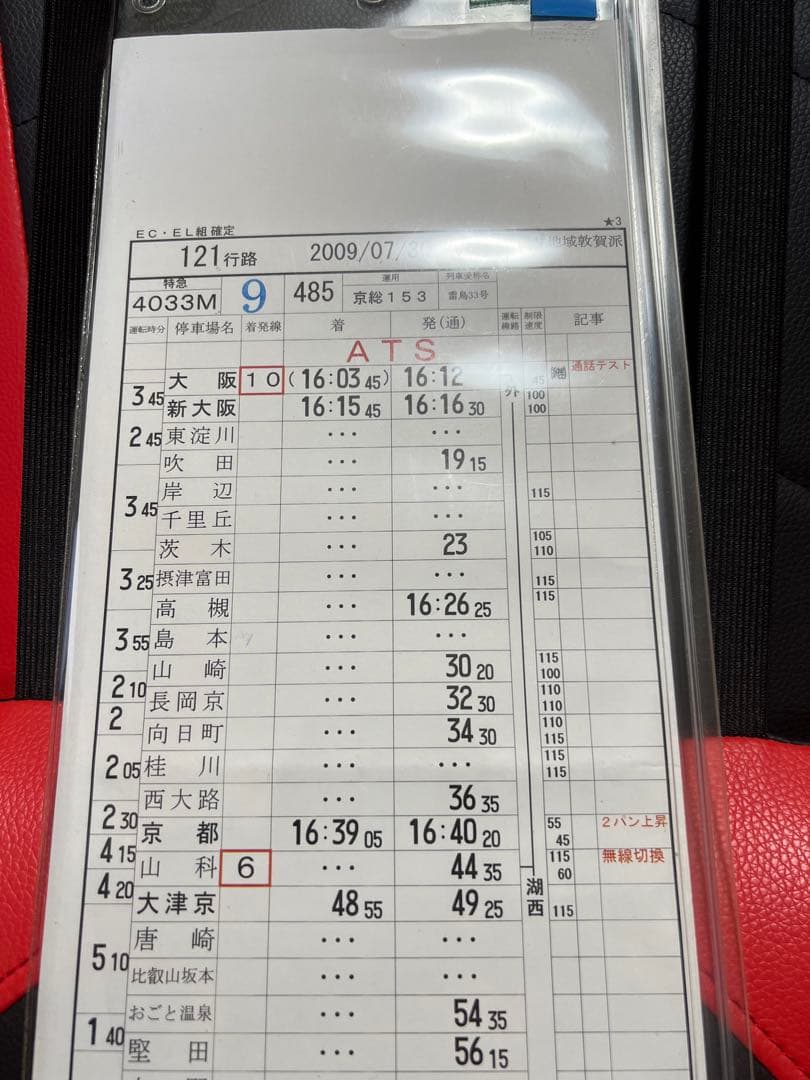 ★3
EC・EL組 確定
121行路 2009/07/3 地域敦賀派
特急 4033M 9 485 運用 京総153 列車愛称名 雷鳥33号
運転時分 停車場名 着発線 着 発(通) 運転線路 制限速度 記事
ATS
大阪 10 (16:03 45) 16:12 外 45 通話テスト
3 45 100
新大阪 16:15 45 16:16 30 100
2 45 東淀川 ... ...
吹田 ... 19 15
岸辺 ... ... 115
3 45 千里丘 ... ...
茨木 ... 23 105 110
3 25 摂津富田 ... ... 115
高槻 ... 16:26 25 115
3 55 島本 ... ...
山崎 ... 30 20 115 100
2 10 長岡京 ... 32 30 110 110
2 向日町 ... 34 30 110 115
2 05 桂川 ... ... 115 115
西大路 ... 36 35
2 30 京都 16:39 05 16:40 20 55 45 2パン上昇
4 15 山科 6 ... 44 35 115 60 無線切換
4 20 大津京 48 55 49 25 湖西 115
唐崎 ... ...
5 10 比叡山坂本 ... ...
おごと温泉 ... 54 35
1 40 堅田 ... 56 15